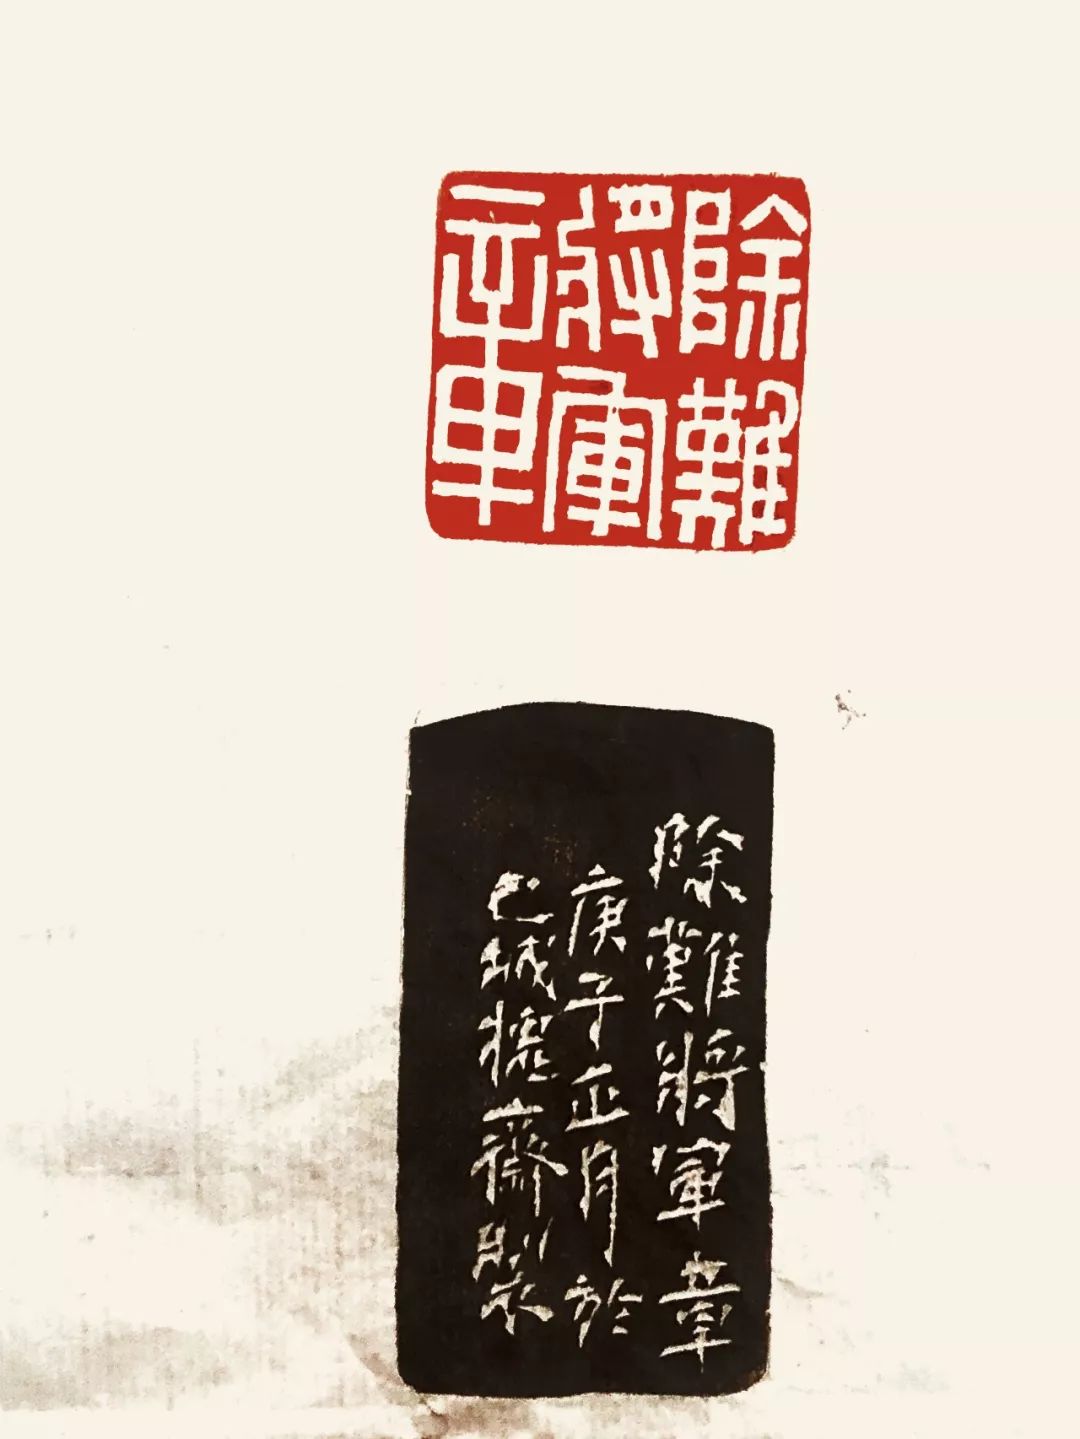 除難
將軍
章
除難將軍章
庚子正月於
巴城德齋製